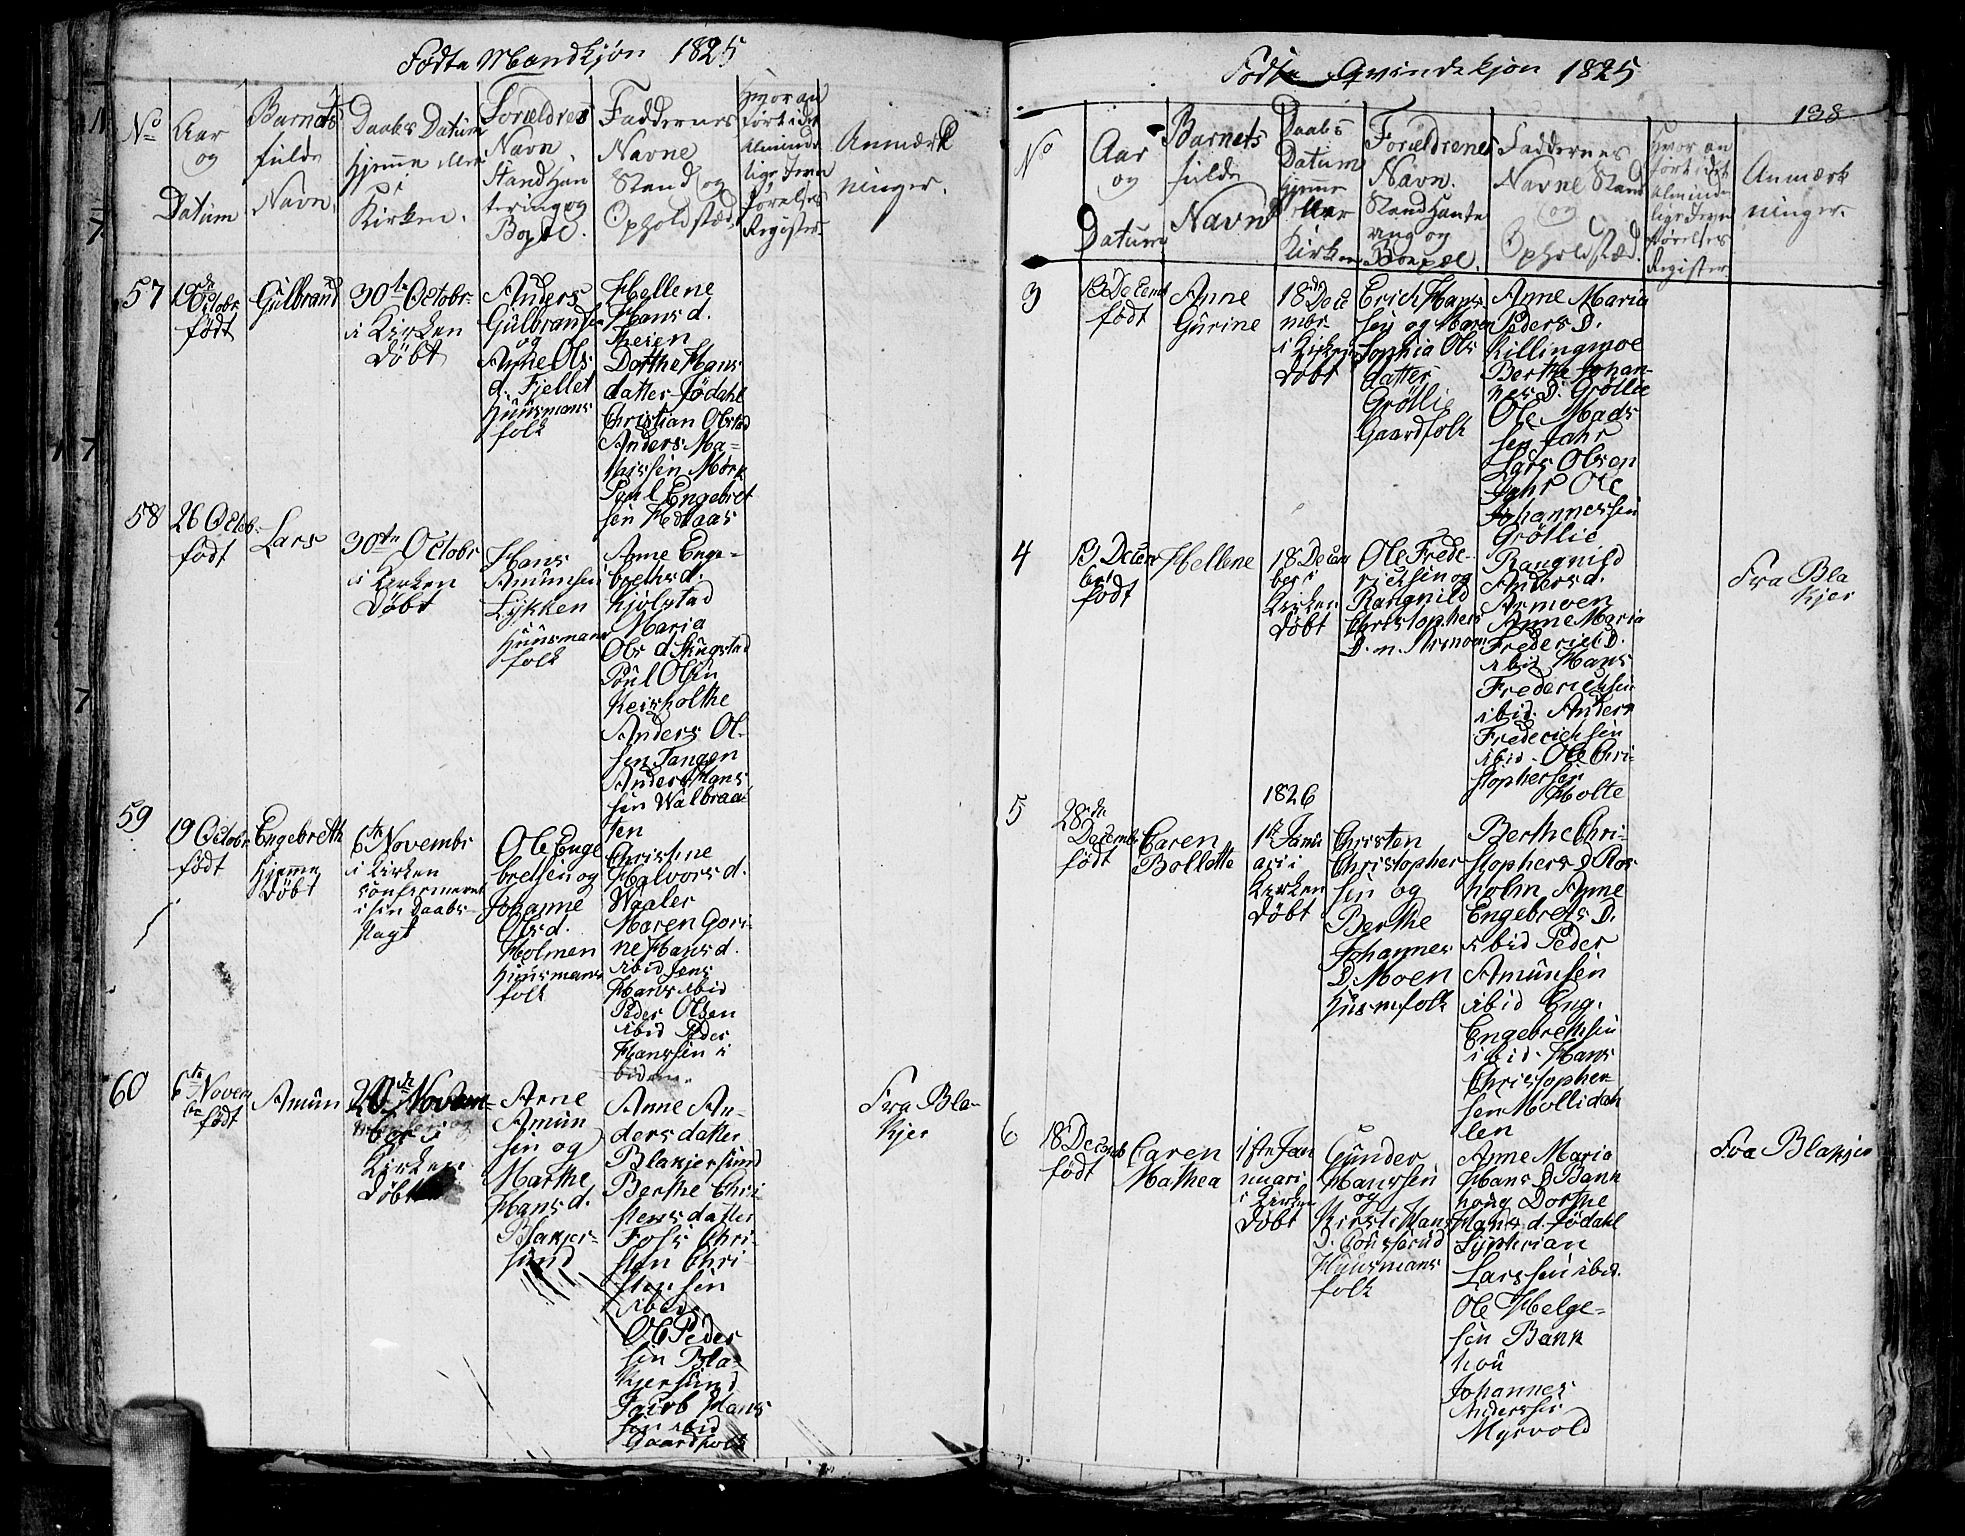 Födte Mandkjön 1825
No
Aar
og
Datum
Barnets
fulde
Navn.
Daabs Datum
hjemme eller
i
Kirken.
Forældres
Navn
Stand Han
tering og
Bopæl.
Faddernes
Navne
Stand og
Opholdstæd
Hvor an
fört i det
Alminde
lige Jevn
förelses
Register
Anmærk
ninger.
57
19de Octobr
födt
Gulbrand
30te Octobr
i Kirken
Döbt
Anders
Gulbrandsen
og
Anne Ols
d. Fjellet
Huusmans
folk
Hellene
Hans d.
Meien
Dorthe Hans
datter Jödahl
Christian Olstad
Anders Ma-
thissen Mörk
Poul Engebret
sen Hedlaas
58
26 Octob.
födt
Lars
30te Octobr
i Kirken
Döbt
Hans
Amunsen
Lykken
Huusmans
folk
Anne Enge-
brethsd.
Kjölstad
Maria
Ols d Skugstad
Poul Olsen
Anders Ol-
sen Tangen
Anders Hans
sen Walbraa-
ten
59
19 Octobr
födt
Engebreth
hjemme
Döbt
6te Novembr
i Kirken
confermeret
i sin Daabs-
Pagt
Ole Enge
bretsen og
Johanne
Olsd.
Holmen
Huusmans
folk
Christine
Halvors d.
Waaler
Maren Gori-
ne Hans d.
ibid Jens
Hans ibid
Peder Olsen
ibid Peder
Hanssen i
bidem.
60
6te Novem
br
födt
Amun
20de Novem-
ber i
Kirken
Döbt
Arne
Amun
sen og
Marthe
Hans d.
Blakjer-
sund
Anne An-
dersdatter
Blakjersund
Berthe Chri
stensdatter
Foss Chri-
sten Chri-
stensen
ibid
Ole Peder
sen Bla-
kjersund
Jacob Hans
sen ibid
Gaardfolk
Fra Bla-
kjer
Födte Qvindekjön 1825
138
No
Aar
og
Datum
Barnets
fulde
Navn
Daabs
Datum
hjemme
eller
Kirken
Forældrenes
Navn.
Stand Hante
ring og
Bopæl.
Faddernes
Navne Stand
og
Opholdstæd.
Hvor an
fört i det
Alminde
lige Jevn
förelses
Register
Anmærk
ninger.
3
13 Decemb
födt
Anne
Gurine
18de Dece
mbr
i Kirken
Döbt
Erich Hans
sen og Maren
Sophia Ols
datter
Gröllie
Gaardfolk
Anne Maria
Peders D.
Killingmoe
Berthe Johan-
nes D. Gröllie
Ole Mads
sen Jahr
Lars Olsen
Jahr Ole
Johannessen
Gröllie
4
13 Decem
ber
födt
Hellene
18 Decem
ber i
Kirken
Döbt
Ole Frede-
richsen og
Rangnild
Christophers
D. n. Armoen
Rangnild
Anders d.
Armoen
Anne Maria
Frederich D.
ibid Hans
Frederichsen
ibid. Anders
Frederichsen
ibid. Ole Chri-
stophersen
Holte
Fra Bla
kjer
5
28de
Decembr
födt
Caren
Bollette
1826
1st Janu
ari i
Kirken
Döbt
Christen
Christopher
sen og
Berthe
Johannes
D. Moen
Husmfolk
Berthe Chri-
stophers D Ros
holm Anne
Engebrets D.
ibid Peder
Amunsen
ibid Eng.
Engebrethsen
ibid. Hans
Christopher
sen Mollidah
len
6
18 Decemb
födt
Caren
Mathea
1ste Jan
nuari
i Kirken
Döbt
Gunder
Hanssen
og
Kirsti Hans
D.
Huusmans
folk
Anne Maria
Hans D Bank
houg Dorthe
Hans d. Jödahl
Larssen ibid.
Ole Helge-
sen Bank
hou
Johannes
Anderssen
Myrvold
Fra Blakjer